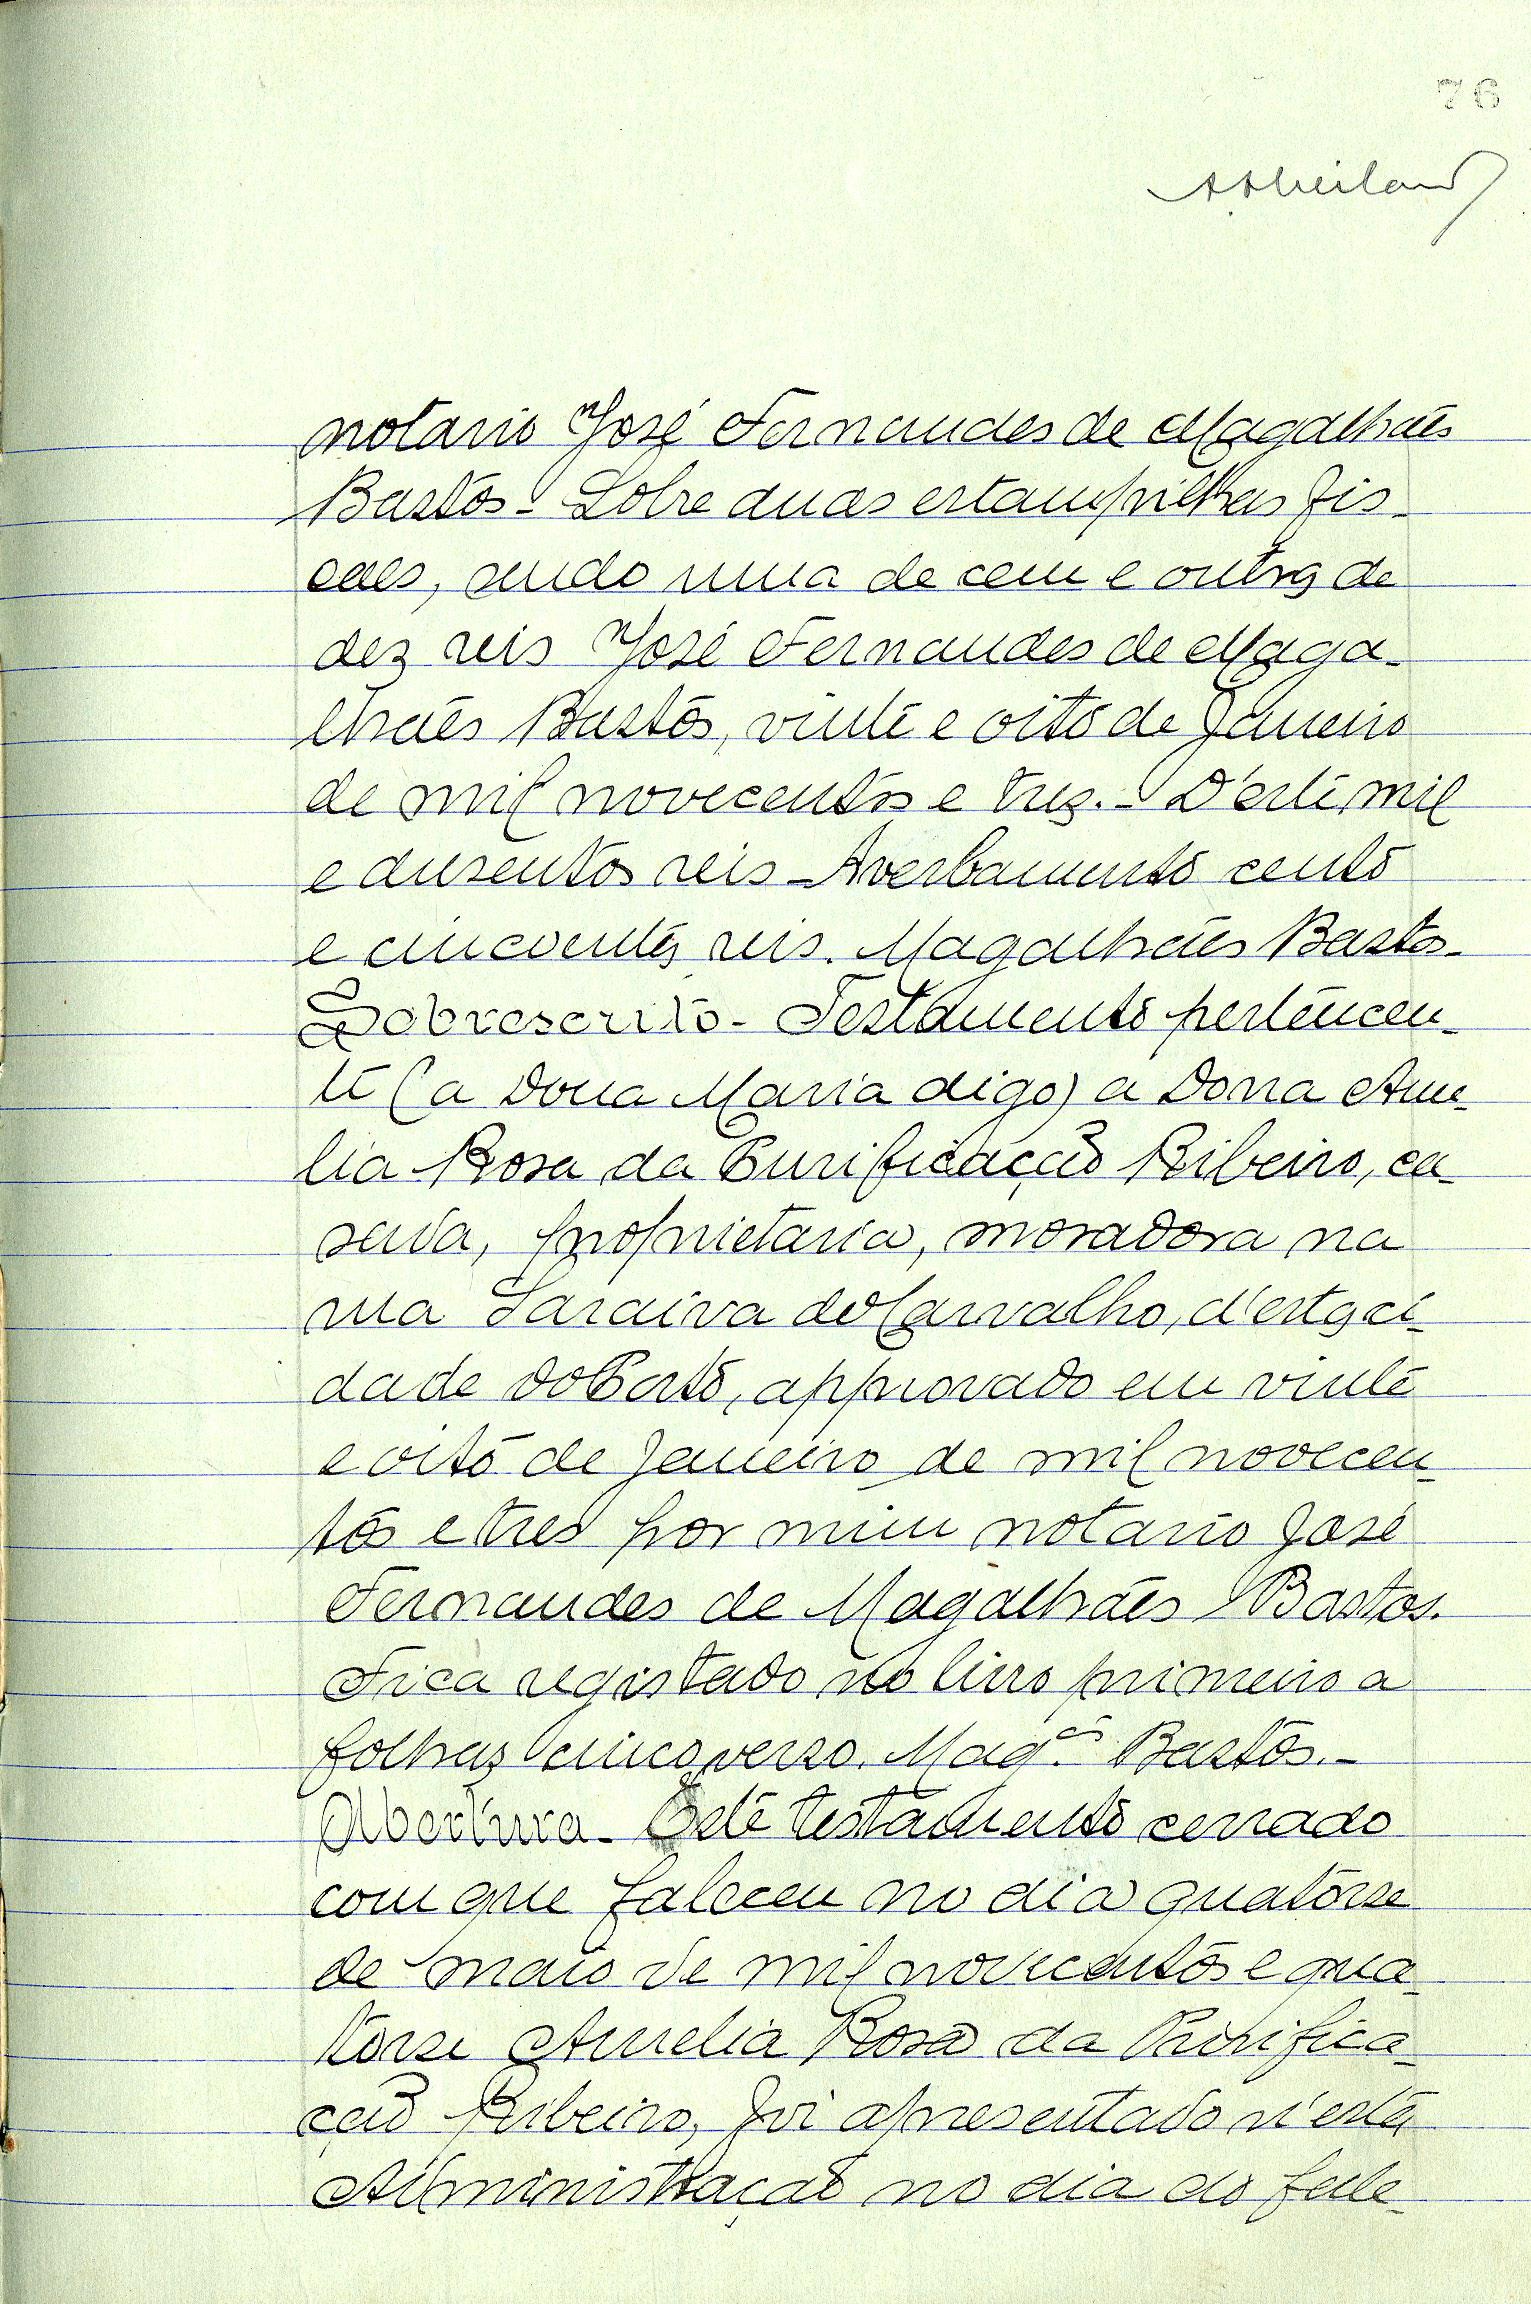 76
notario José Fernandes de Magalhães
Bastos - Sobre duas estampilhas fis-
caes, sendo uma de cem e outra de
dez reis José Fernandes de Maga-
lhães Bastos, vinte e oito de Janeiro
de mil novecentos e tres. - D'este, mil
e dusentos reis - Averbamento cento
e cincoenta reis. Magalhães Bastos -
Sobrescrito - Testamento pertencen-
te (a Dona Maria digo) a Dona Ame-
lia Rosa da Purificação Ribeiro, ca-
sada, proprietaria, moradora na
rua Saraiva de Carvalho, d'esta ci-
dade do Porto, approvado em vinte
e oito de Janeiro de mil novecen-
tos e tres por mim notario José
Fernandes de Magalhães Bastos.
Fica registado no livro primeiro a
folhas cinco verso. Mag.es Bastos. -
Abertura - Este testamento cerrado
com que faleceu no dia quatorse
de maio de mil novecentos e qua-
torse Amelia Rosa da Purifica-
ção Ribeiro, foi apresentado n'esta
Administração no dia do fale-